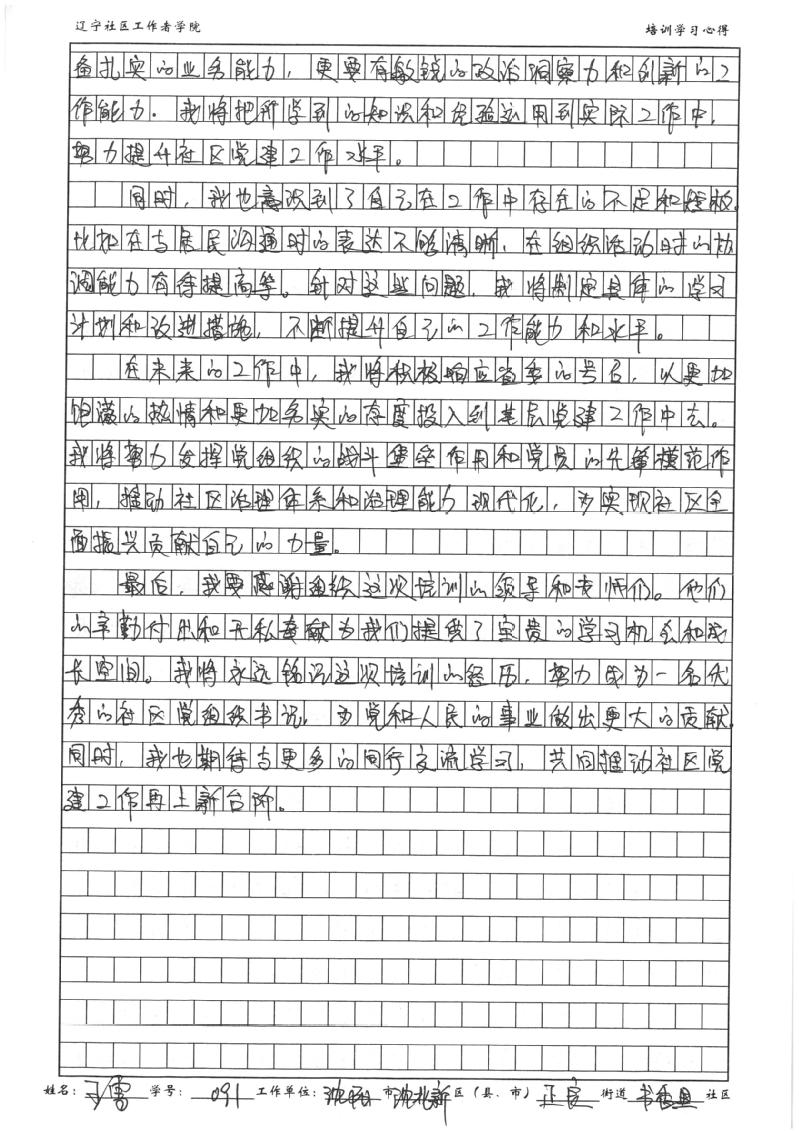 辽宁社区工作者学院 培训学习心得
备扎实的业务能力，更要有敏锐的政治洞察力和创新的工
作能力。我将把所学到的知识和经验运用到实际工作中，
努力提升社区党建工作水平。
同时，我也意识到了自己在工作中存在的不足和短板。
比如在与居民沟通时的表达不够清晰，在组织活动时的协
调能力有待提高等。针对这些问题，我将制定具体的学习
计划和改进措施，不断提升自己的工作能力和水平。
在未来的工作中，我将积极响应省委的号召，以更加
饱满的热情和更加务实的态度投入到基层党建工作中去。
我将努力发挥党组织的战斗堡垒作用和党员的先锋模范作
用，推动社区治理体系和治理能力现代化，为实现社区全
面振兴贡献自己的力量。
最后，我要感谢组织这次培训的领导和老师们。他们
的辛勤付出和无私奉献为我们提供了宝贵的学习机会和成
长空间。我将永远铭记这次培训的经历，努力成为一名优
秀的社区党组织书记，为党和人民的事业做出更大的贡献。
同时，我也期待与更多的同行交流学习，共同推动社区党
建工作再上新台阶。
姓名： 学号：091 工作单位：沈阳市沈北新区（县、市）正良街道书香里社区